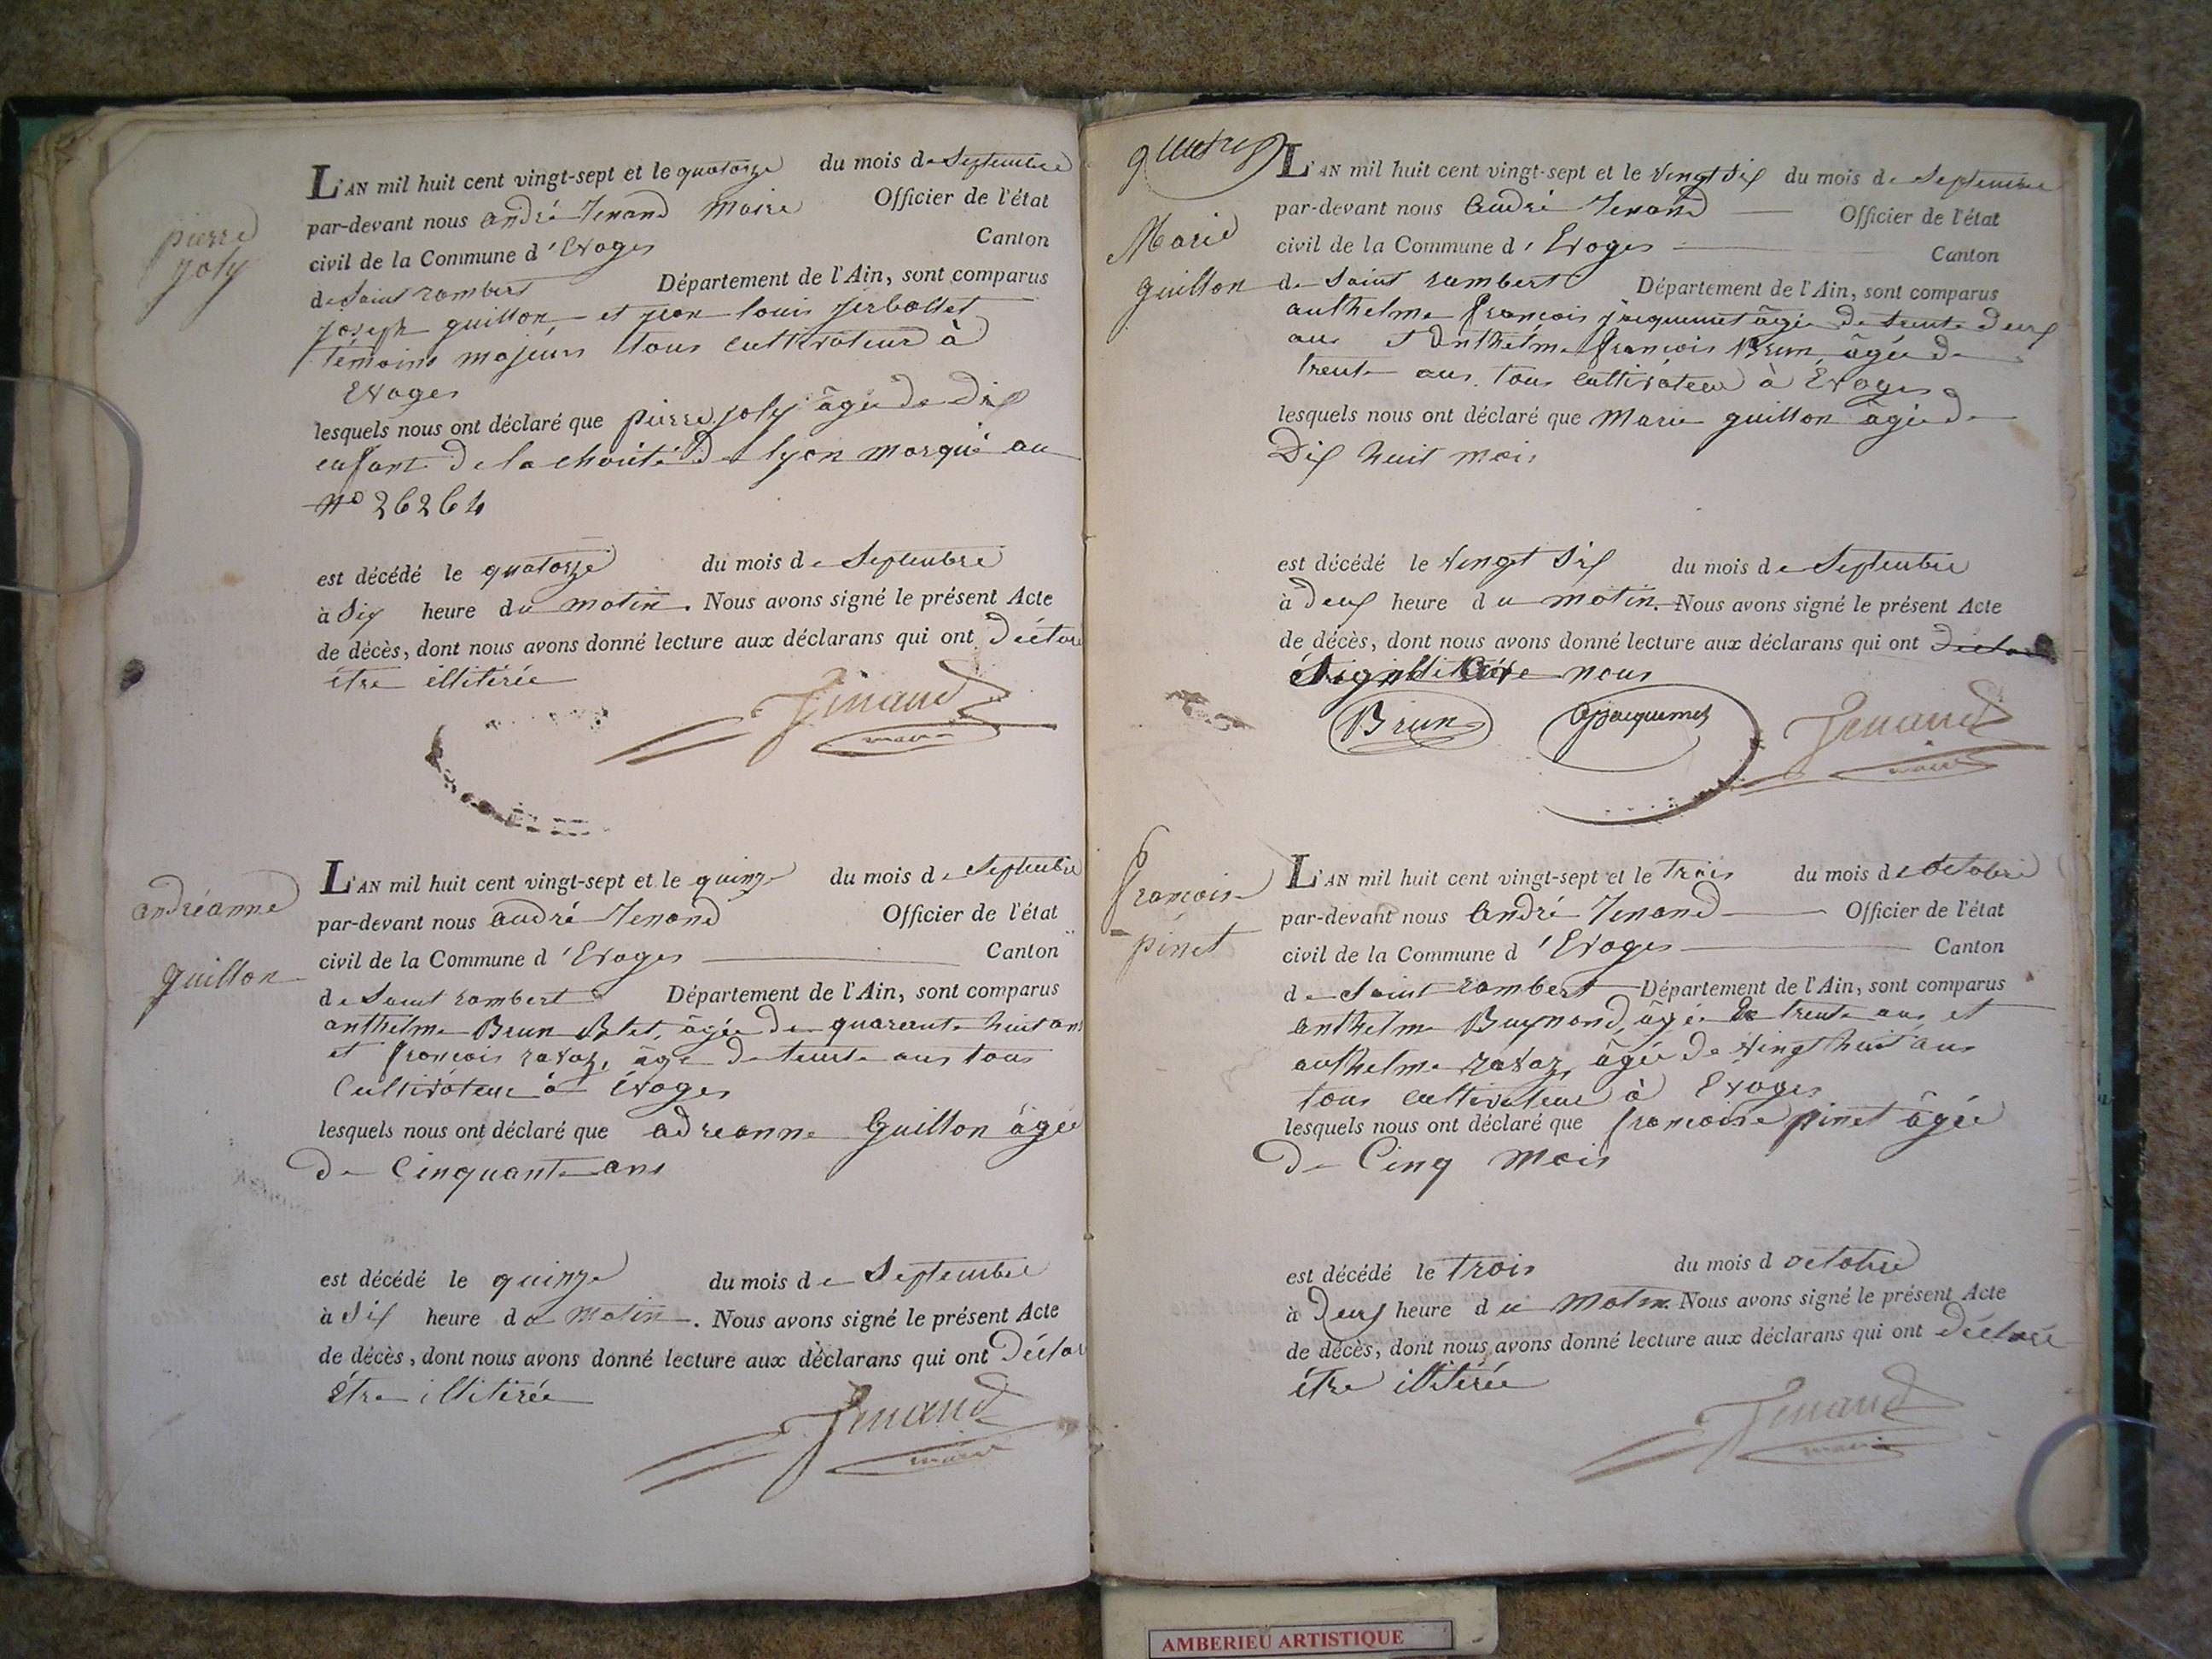 pierre
joly
L'AN mil huit cent vingt-sept et le quatorze du mois de Septembre
par-devant nous andré Tenand Maire Officier de l'état
civil de la Commune d'Evoges Canton
de Saint rambert Département de l'Ain, sont comparus
joseph guillon et jean louis
témoins majeurs tous cultivateur à
Evoges
lesquels nous ont déclaré que pierre joly âgée de dix
enfant de la charité de lyon marqué au
N° 26264
est décédé le quatorze du mois de Septembre
à Six heure du matin. Nous avons signé le présent Acte
de décès, dont nous avons donné lecture aux déclarans qui ont déclaré
être illitérée
Tenand
maire
andréanne
guillon
L'AN mil huit cent vingt-sept et le quinze du mois de Septembre
par-devant nous andré Tenand Officier de l'état
civil de la Commune d'Evoges Canton
de Saint rambert Département de l'Ain, sont comparus
anthelme Brun Blet, âgée de quarante huit ans
et françois ravaz, âge de trente ans tous
Cultivateur à Évoges
lesquels nous ont déclaré que adreanne Guillon âgée
de Cinquante ans
est décédé le quinze du mois de Septembre
à Six heure du Matin. Nous avons signé le présent Acte
de décès, dont nous avons donné lecture aux déclarans qui ont déclar
être illitérée
Tenand
maire
quatre
Marie
guillon
L'AN mil huit cent vingt-sept et le vingt Six du mois de Septembre
par-devant nous André Tenand Officier de l'état
civil de la Commune d'Evoges Canton
de Saint rambert Département de l'Ain, sont comparus
anthelme françois jacquemet âgée de trente deux
ans et Anthelme françois Brun âgée de
trente ans tous cultivateur à Évoges
lesquels nous ont déclaré que Marie guillon âgée de
Dix huit mois
est décédé le vingt Six du mois de Septembre
à deux heure du matin. Nous avons signé le présent Acte
de décès, dont nous avons donné lecture aux déclarans qui ont
Signé avec nous
Brun Jacquemet Tenand
maire
françoise
pinet
L'AN mil huit cent vingt-sept et le trois du mois de Octobre
par-devant nous André Tenand Officier de l'état
civil de la Commune d'Evoges Canton
de Saint rambert Département de l'Ain, sont comparus
anthelme âgée de trente ans et
anthelme ravaz, âgée de vingt huit ans
tous cultivateur à Evoges
lesquels nous ont déclaré que françoise pinet âgée
de Cinq mois
est décédé le trois du mois d octobre
à Deux heure du matin Nous avons signé le présent Acte
de décès, dont nous avons donné lecture aux déclarans qui ont déclaré
être illitérée
Tenand
maire
AMBERIEU ARTISTIQUE